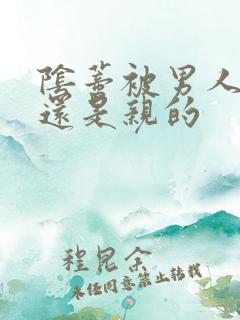 陰蒂被男人
還是親的
程昆
未经同意禁止转载